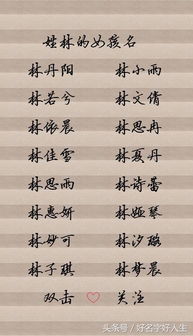 姓林的女孩名
林丹阳 林小雨
林若兮 林文倩
林依晨 林思冉
林佳雪 林夏丹
林思雨 林诗蕾
林惠妍 林娅琴
林妙可 林汐璐
林子琪 林梦晨
双击 关注
头条号 / 好名字好人生